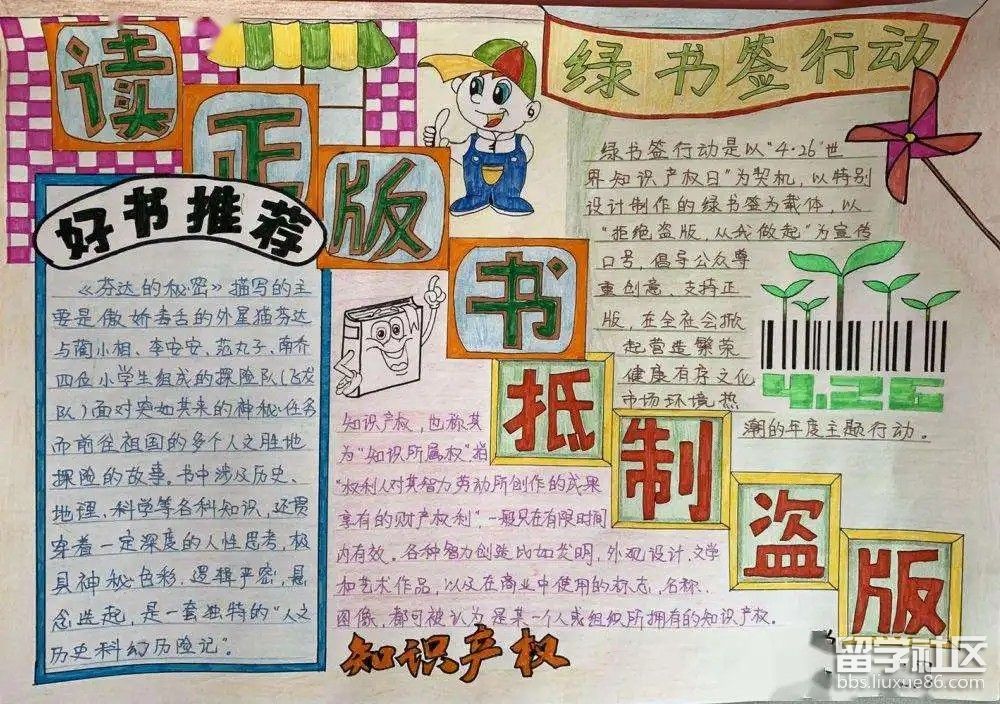 读正版书
抵制盗版
绿书签行动
绿书签行动是以"4·26"世
界知识产权日"为契机，以特别
设计制作的绿书签为载体，以
"拒绝盗版，从我做起"为宣传
口号，倡导公众尊
重创意、支持正
版，在全社会掀
起营造繁荣
健康有序文化
市场环境热
潮的年度主题行动。
4.26
好书推荐
《芬达的秘密》描写的主
要是傲娇毒舌的外星猫芬达
与蔺小相、李安安、范丸子、南乔
四位小学生组成的探险队（飞炭
队）面对突如其来的神秘任务
而前往祖国的多个人文胜地
探险的故事。书中涉及历史、
地理、科学等各科知识，还贯
穿着一定深度的人性思考，极
具神秘色彩、逻辑严密，悬
念迭起，是一套独特的"人文
历史科幻历险记"。
知识产权，也称其
为"知识所属权"指
"权利人对其智力劳动所创作的成果
享有的财产权利"，一般只在有限时间
内有效。各种智力创造比如发明，外观设计，文学
和艺术作品，以及在商业中使用的标志，名称，
图像，都可被认为是某一个人或组织所拥有的知识产权。
知识产权
留学社区
bbs.liuxue86.com